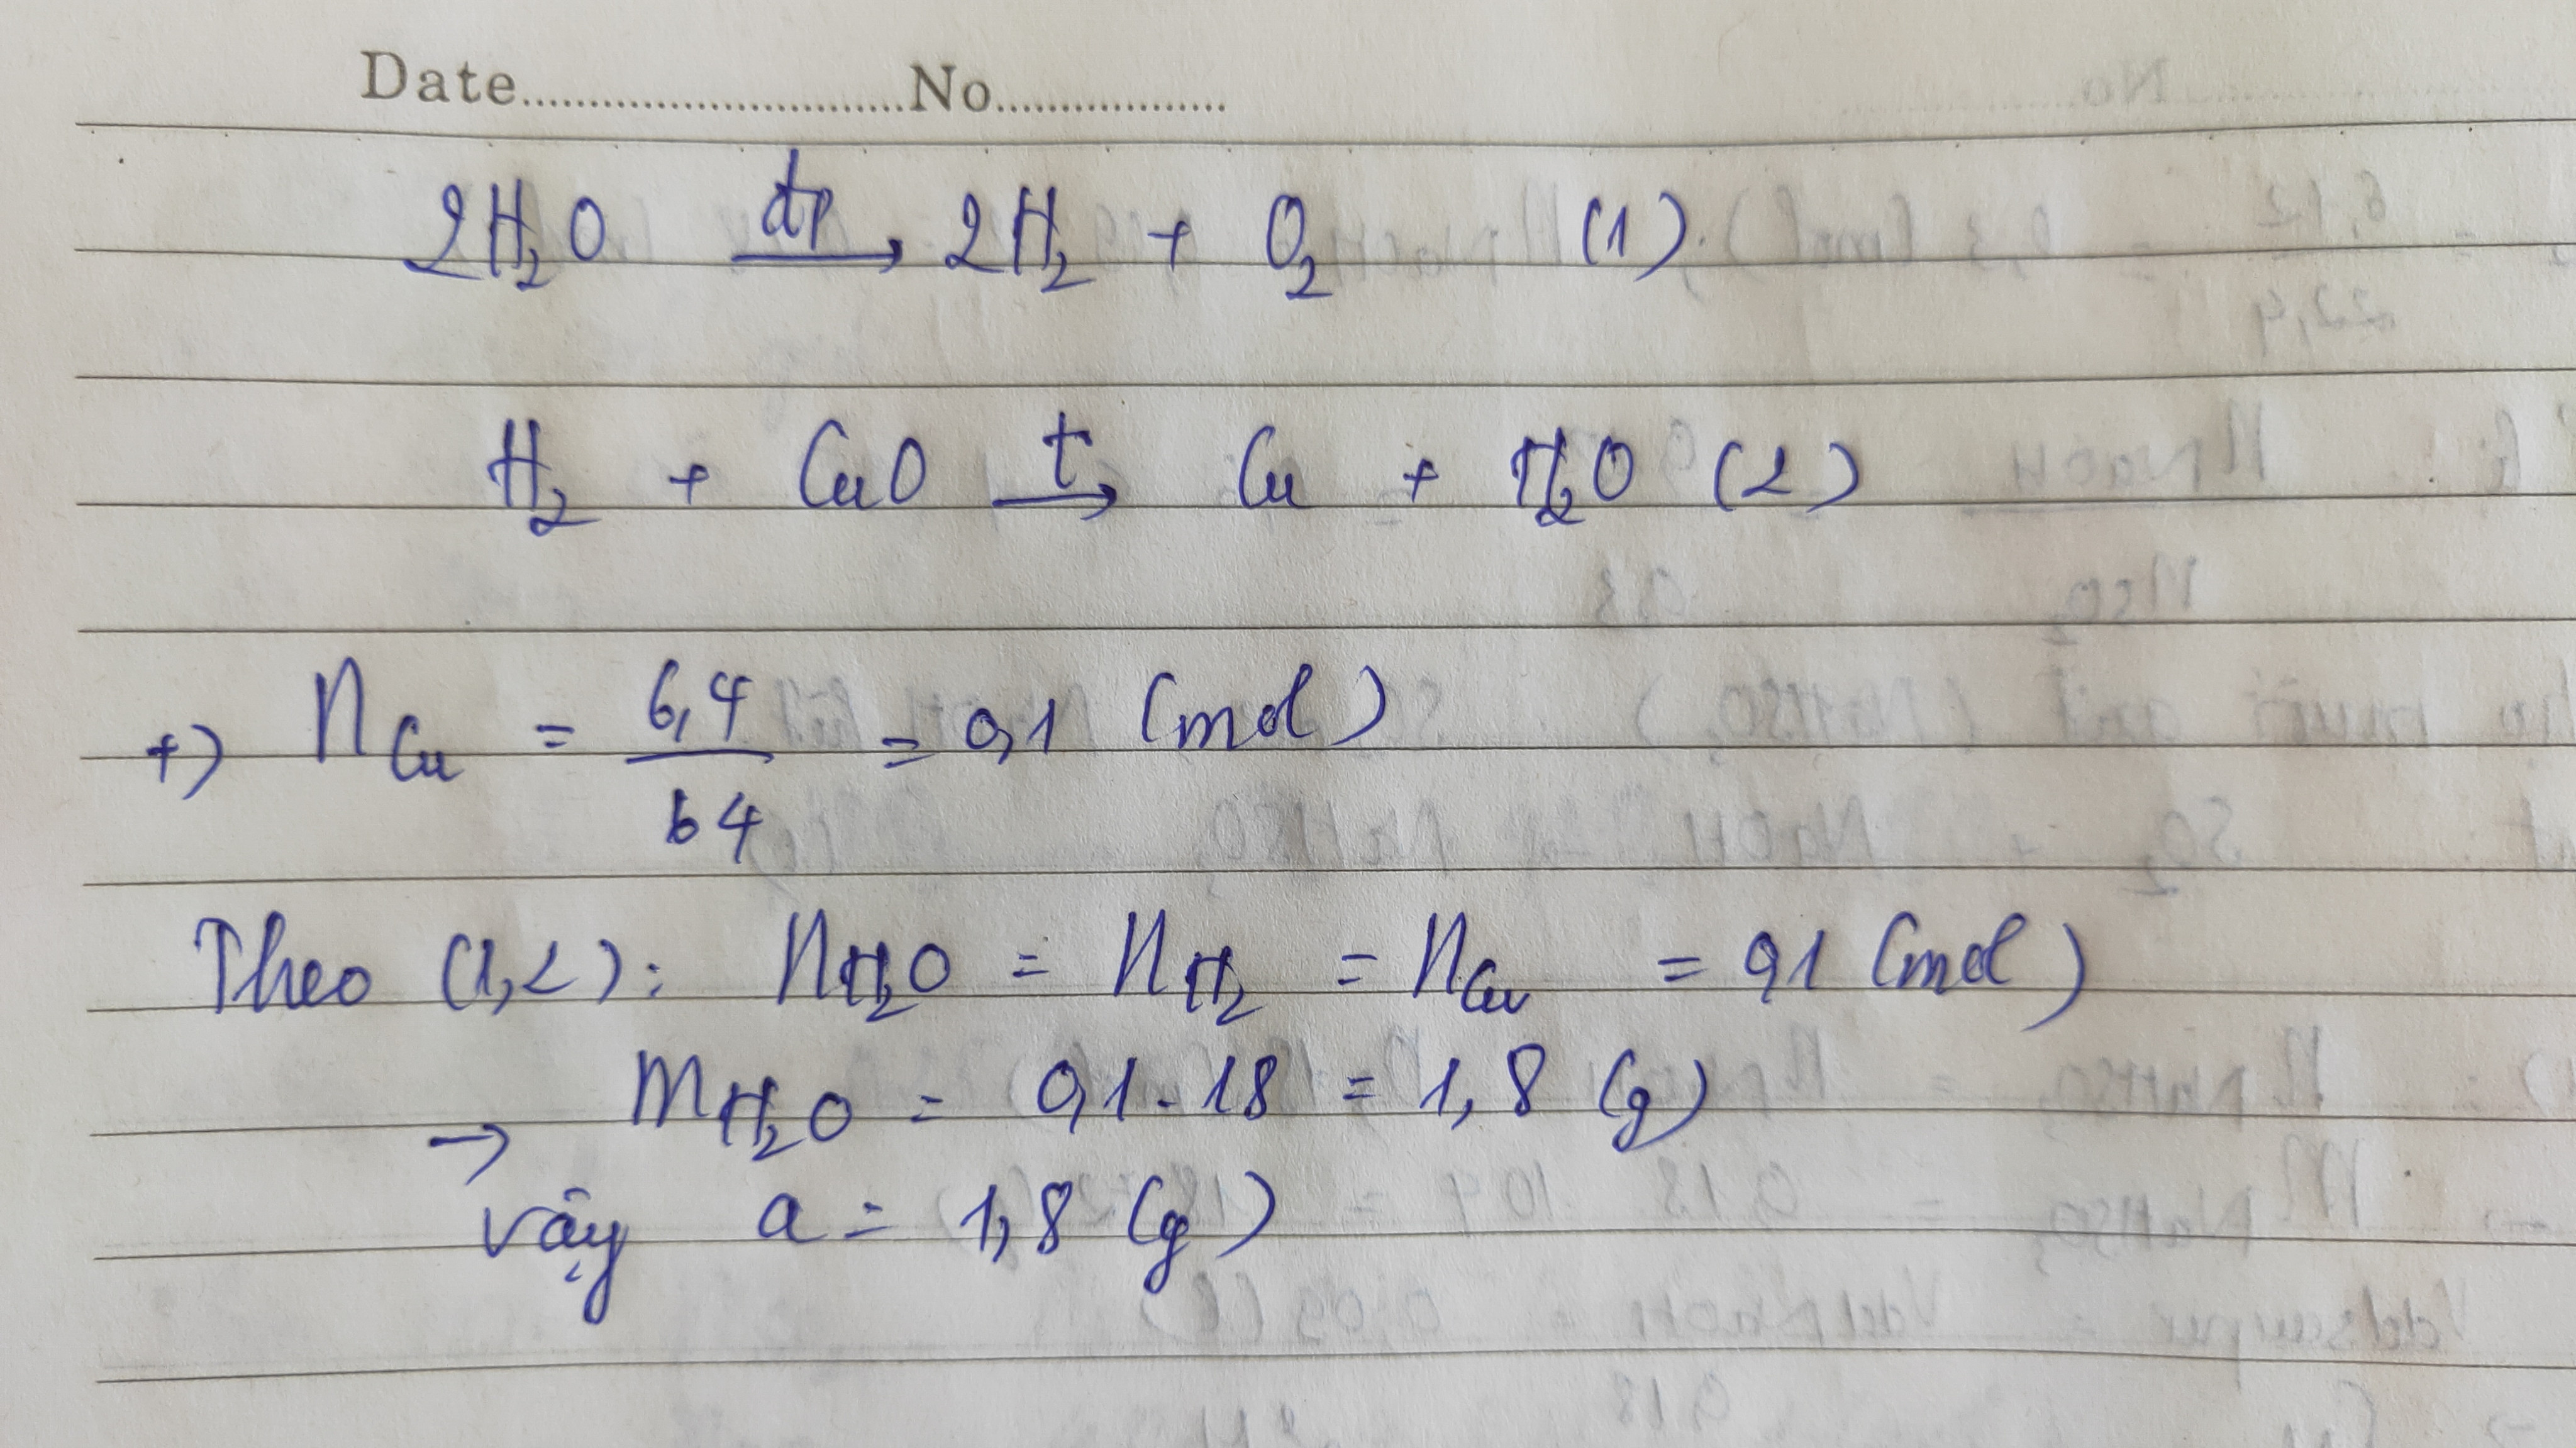 Date..............................No..................
2H₂O →(đp) 2H₂ + O₂ (1)
H₂ + CuO →(t) Cu + H₂O (2)
+) n Cu = 6,4/64 = 0,1 (mol)
Theo (1,2): n H₂O = n H₂ = n Cu = 0,1 (mol)
→ m H₂O = 0,1 . 18 = 1,8 (g)
vậy a = 1,8 (g)